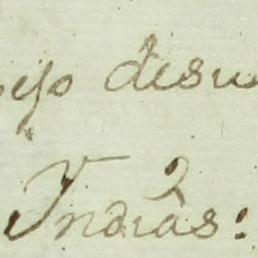 ejo desu
Yndias: